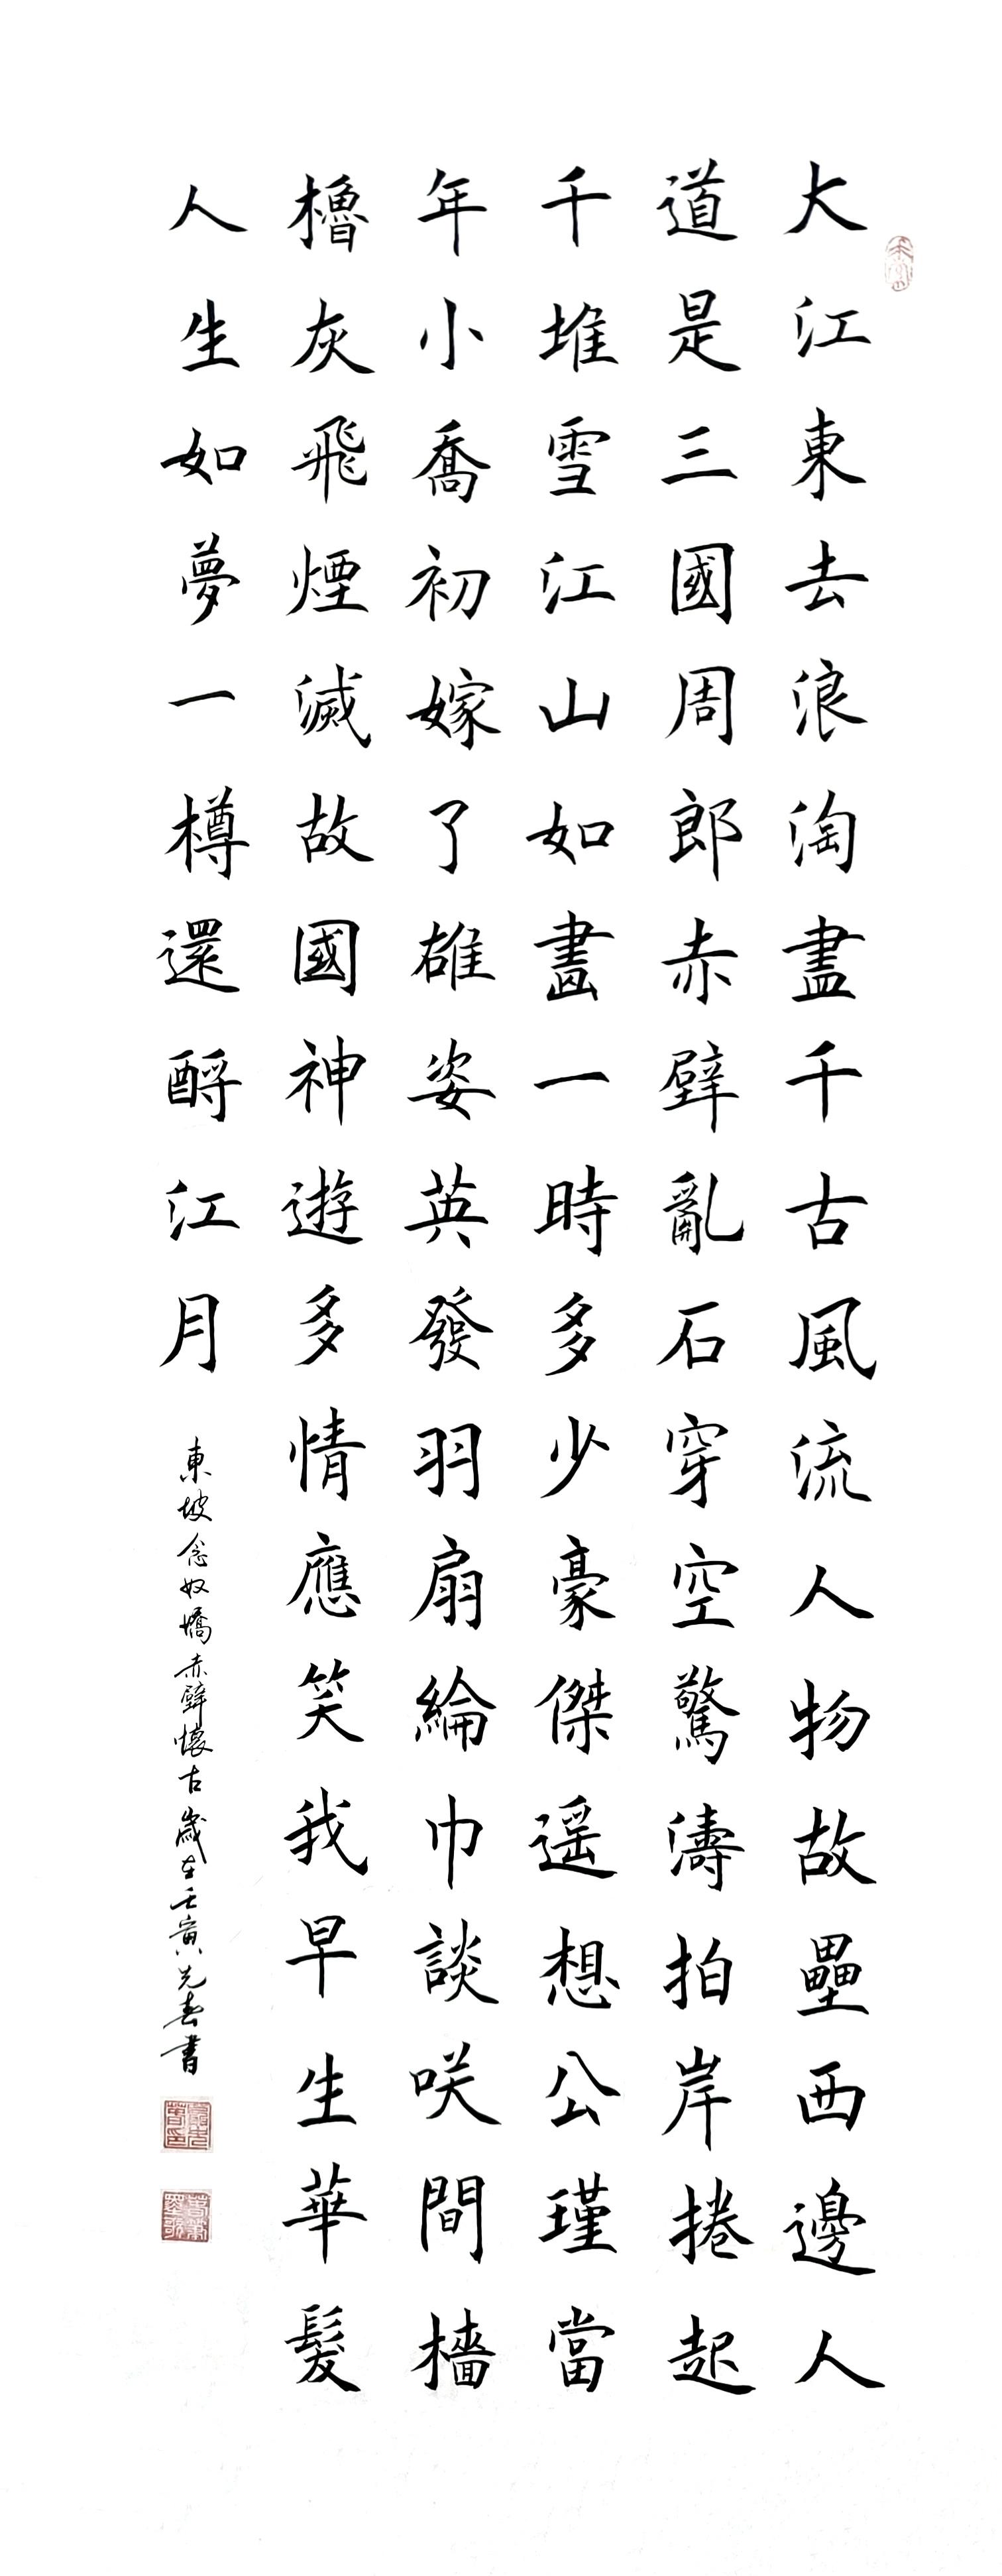 大江東去浪淘盡千古風流人物故壘西邊人
道是三國周郎赤壁亂石穿空驚濤拍岸捲起
千堆雪江山如畫一時多少豪傑遥想公瑾當
年小喬初嫁了雄姿英發羽扇綸巾談咲間檣
櫓灰飛煙滅故國神遊多情應笑我早生華髮
人生如夢一樽還酹江月
東坡念奴嬌赤壁懷古歲在壬寅先春書